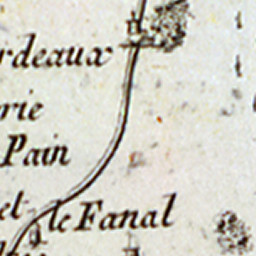 rdeaux
rie
Pain
el-
le Fanal